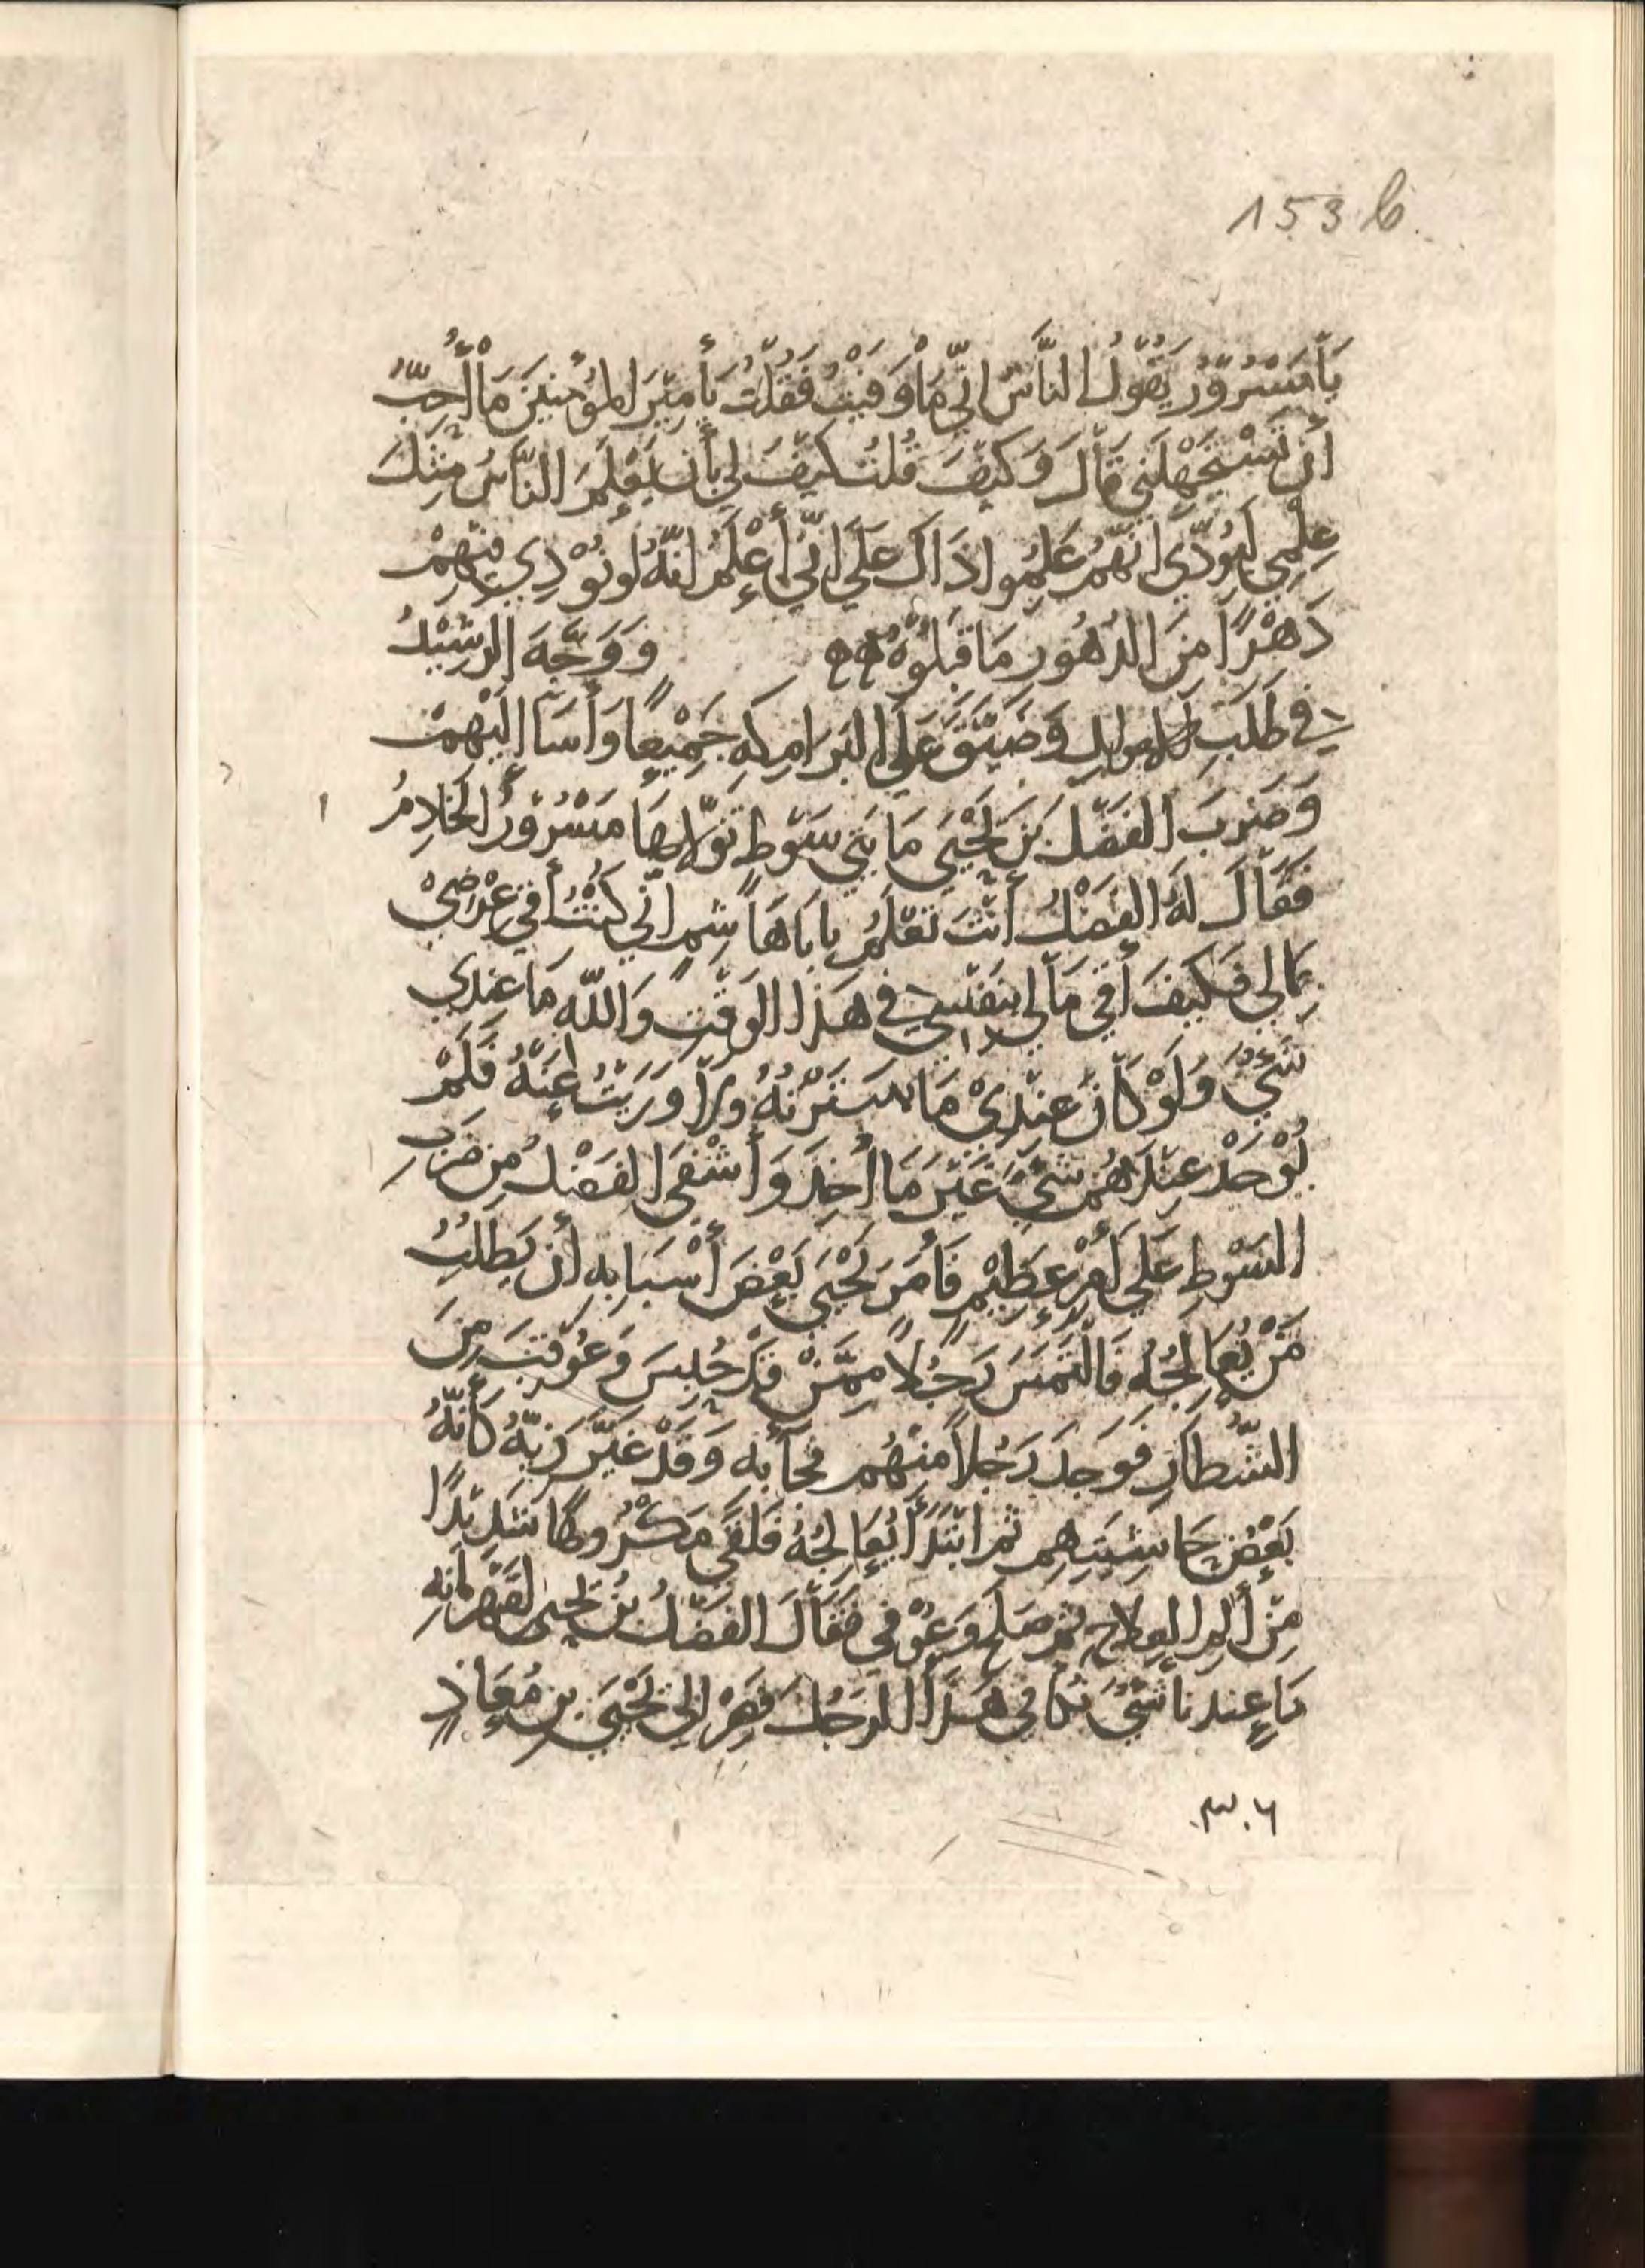 153 b.
يَا مَسْرُوْرُ يَقُوْلُ النَّاسُ اِنِّي مَا وَفَيْتُ فَقُلْتُ يَأَمِيْرَ المُؤْمِنِيْنَ مَا أُحِبُّ
أَن تَسْتَجْهِلَنِي قَالَ وَكَيْفَ قُلتُ كَيْفَ لِي بِأَن يَعْلَمَ النَّاسُ مِنْكَ
عِلْمِي اَنَّهُمْ عَلِمُوا ذَاكَ عَلَى اِنِّي أَعْلَمُ انَّهُ لَو نُوْدِي فِيْهِمْ
دَهْرًا مِنَ الدُهُورِ مَا قَبِلُوْهُ وَوَجَّهَ الرَشِيْدُ
فِي طَلَبِ الاموالِ وَضَيَّقَ عَلَى البَرَامِكِهِ جَمِيْعًا وَأَسَآ اِلَيْهِمْ
وَضَرَبَ الفَضْلَ بنَ يَحْيَى مَايَتَي سَوْطٍ تَوَلَّاهَا مَسْرُوْرُ الخَادِمُ
فَقَالَ لَهُ الفَضْلُ أَنْتَ تَعْلَمُ يا بَاهَاشِمٍ اَنِّي كُنْتُ أَقِي عِرْضِيْ
بِمَالِي فَكَيْفَ أَقِي مَالِي بِنَفْسِي فِي هَذَا الوَقْتِ وَاللّهِ مَا عِنْدِي
شَيْءٌ وَلَوْ كَانَ عِنْدِيْ مَا سَتَرْتُهُ وَلَا وَرَيْتُ عَنْهُ فَلَمْ
يُوْجَدْ عِنْدَهُم شَيْءٌ غَيْرَ مَا أُخِذَ وَأَشْفَى الفَضْلُ مِن ضَرْبِ
السَوْطِ عَلَى أَمْرٍ عَظِيْمٍ فَأَمَرَ يَحْيَى بَعْضَ أَسْبَابِهِ أَن يَطْلُبَ
مَنْ يُعَالِجُهُ فَالْتَمَسَ رَجُلاً مِمَّنْ قَدْ حُبِسَ وَعُوْقِبَ مِنَ
الشُّطَارِ فَوَجَدَ رَجُلاً مِنْهُم فَجَآءَ بِهِ وَقَدْ غَيَّرَ زِيَّهُ كَأَنَّهُ
بَعْضُ حَاشِيَتِهِم ثم ابْتَدَأَ يُعَالِجُهُ فَلَقَى مَكْرُوهًا شَدِيْدًا
مِنْ أَلَمِ العِلَاجِ ثم صَلَحَ وَعُوْفِي فَقَالَ الفَضْلُ بْنُ يَحيى لقَهْرَمَانِهِ
مَا عِندنا شَيْءٌ نكافي هَذَا الرَجُلَ فَصِرْ اِلى يَحْيَى بنِ مُعَاذٍ
٣٠٦